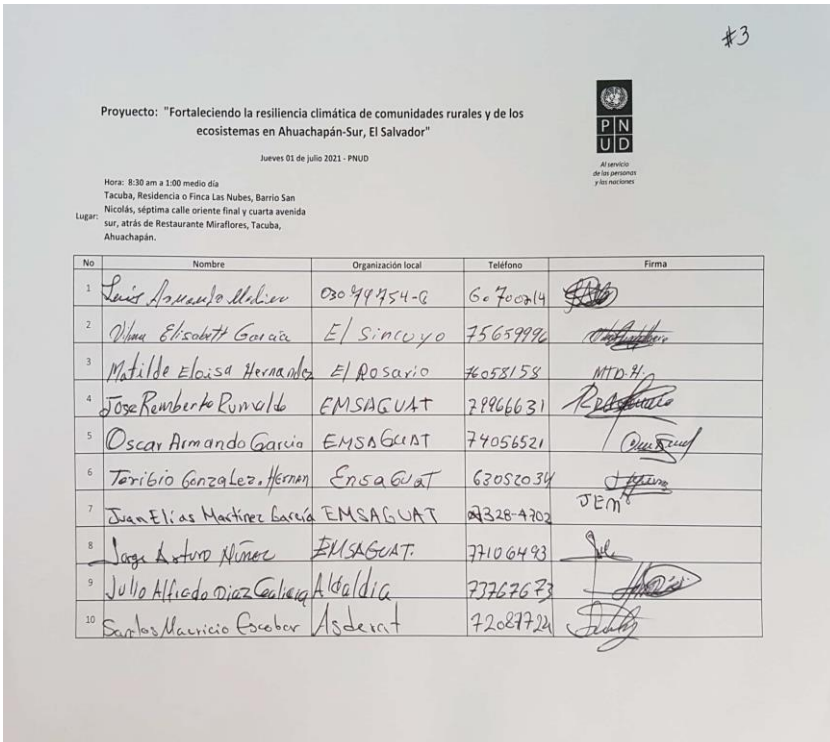 #3
Proyuecto: "Fortaleciendo la resiliencia climática de comunidades rurales y de los
ecosistemas en Ahuachapán-Sur, El Salvador"
Jueves 01 de julio 2021 - PNUD
P N
U D
Al servicio
de las personas
y las naciones
Hora: 8:30 am a 1:00 medio día
Lugar: Tacuba, Residencia o Finca Las Nubes, Barrio San
Nicolás, séptima calle oriente final y cuarta avenida
sur, atrás de Restaurante Miraflores, Tacuba,
Ahuachapán.
No Nombre Organización local Teléfono Firma
1 Luis Armando
2 Vilma Elisabett Garcia El Sincuyo 75659996
3 Matilde Eloisa Hernandez El Rosario 76058158 MTD.H.
4 Jose Remberto Rumaldo EMSAGUAT 79966631
5 Oscar Armando Garcia EMSAGUAT 74056521
6 Toribio Gonzalez. Hernan EnsaGuaT 63052034
7 Juan Elias Martinez García EMSAGUAT 7328-4702 JEM
8 Jorge Arturo Núñez EMSAGUAT. 77106493
9 Julio Alfredo Diaz Alcaldia 73767673
10 Mauricio Escobar Asderat 72087724